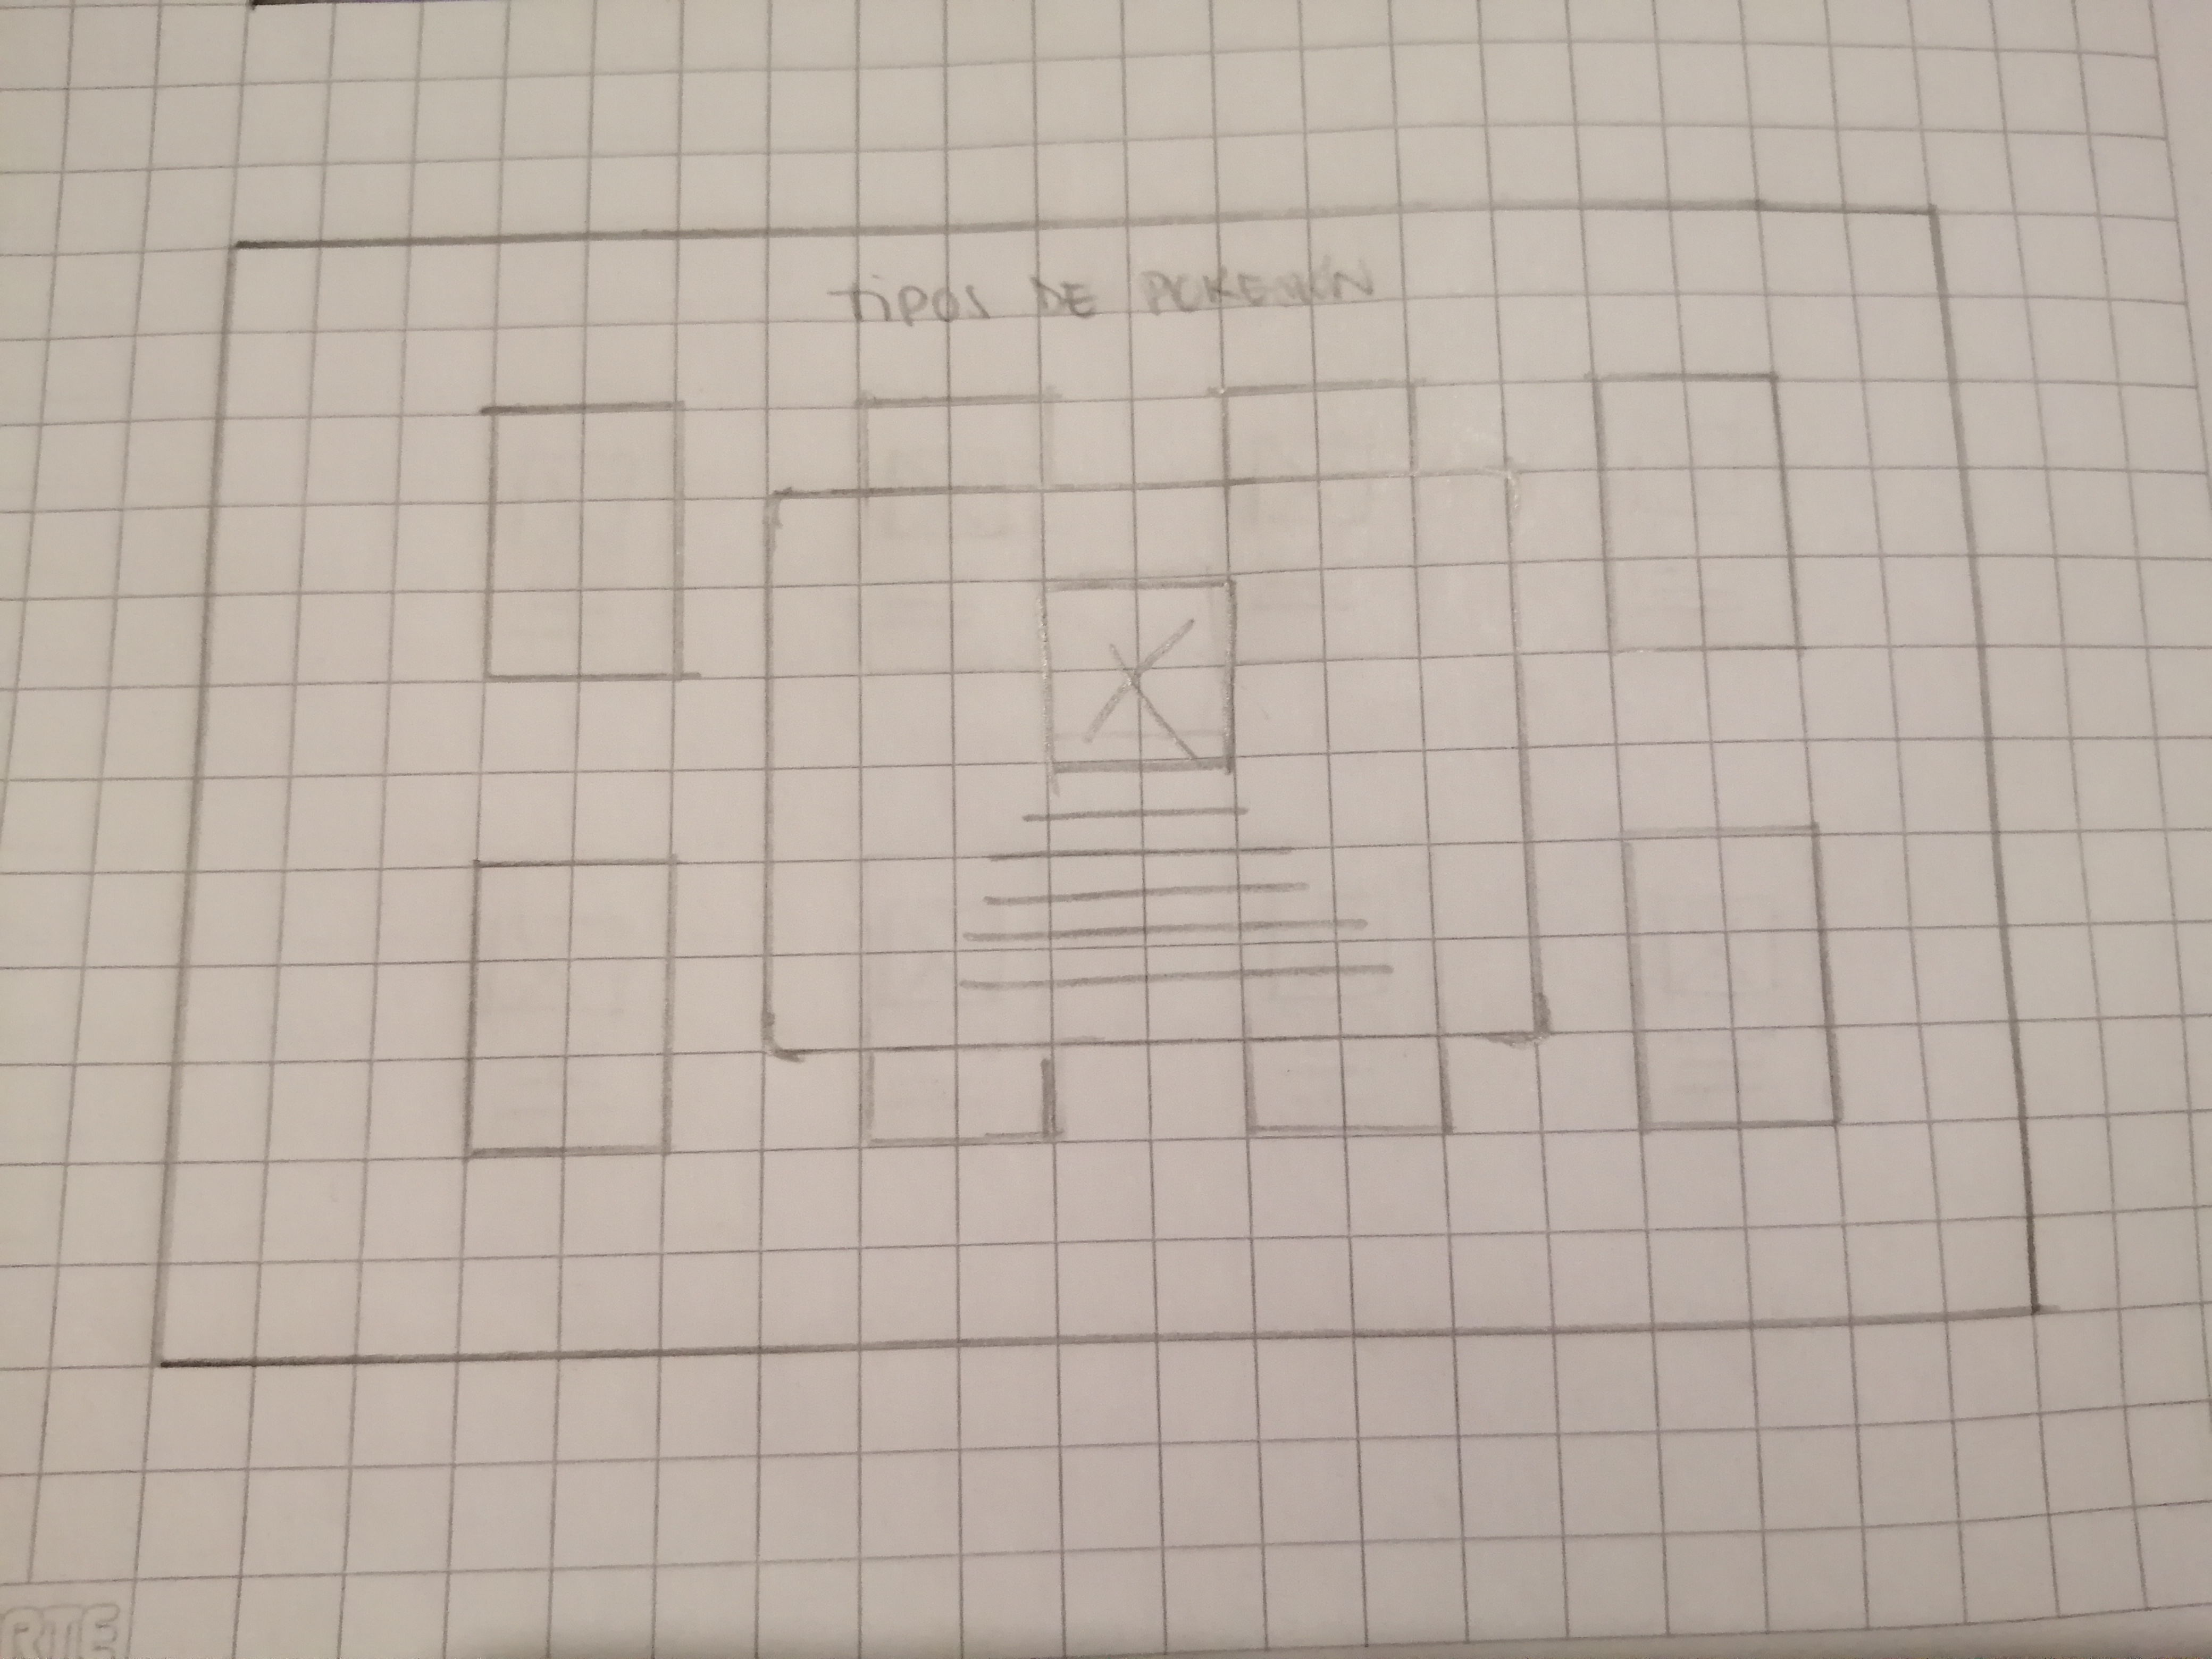 TIPOS DE POKEMÓN
RTE